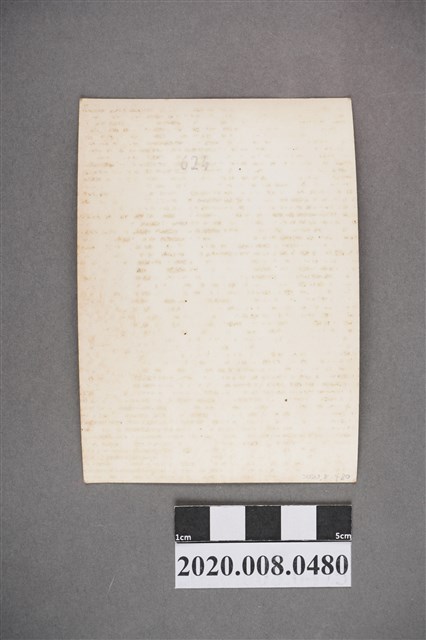 624
1cm
5cm
2020.008.0480